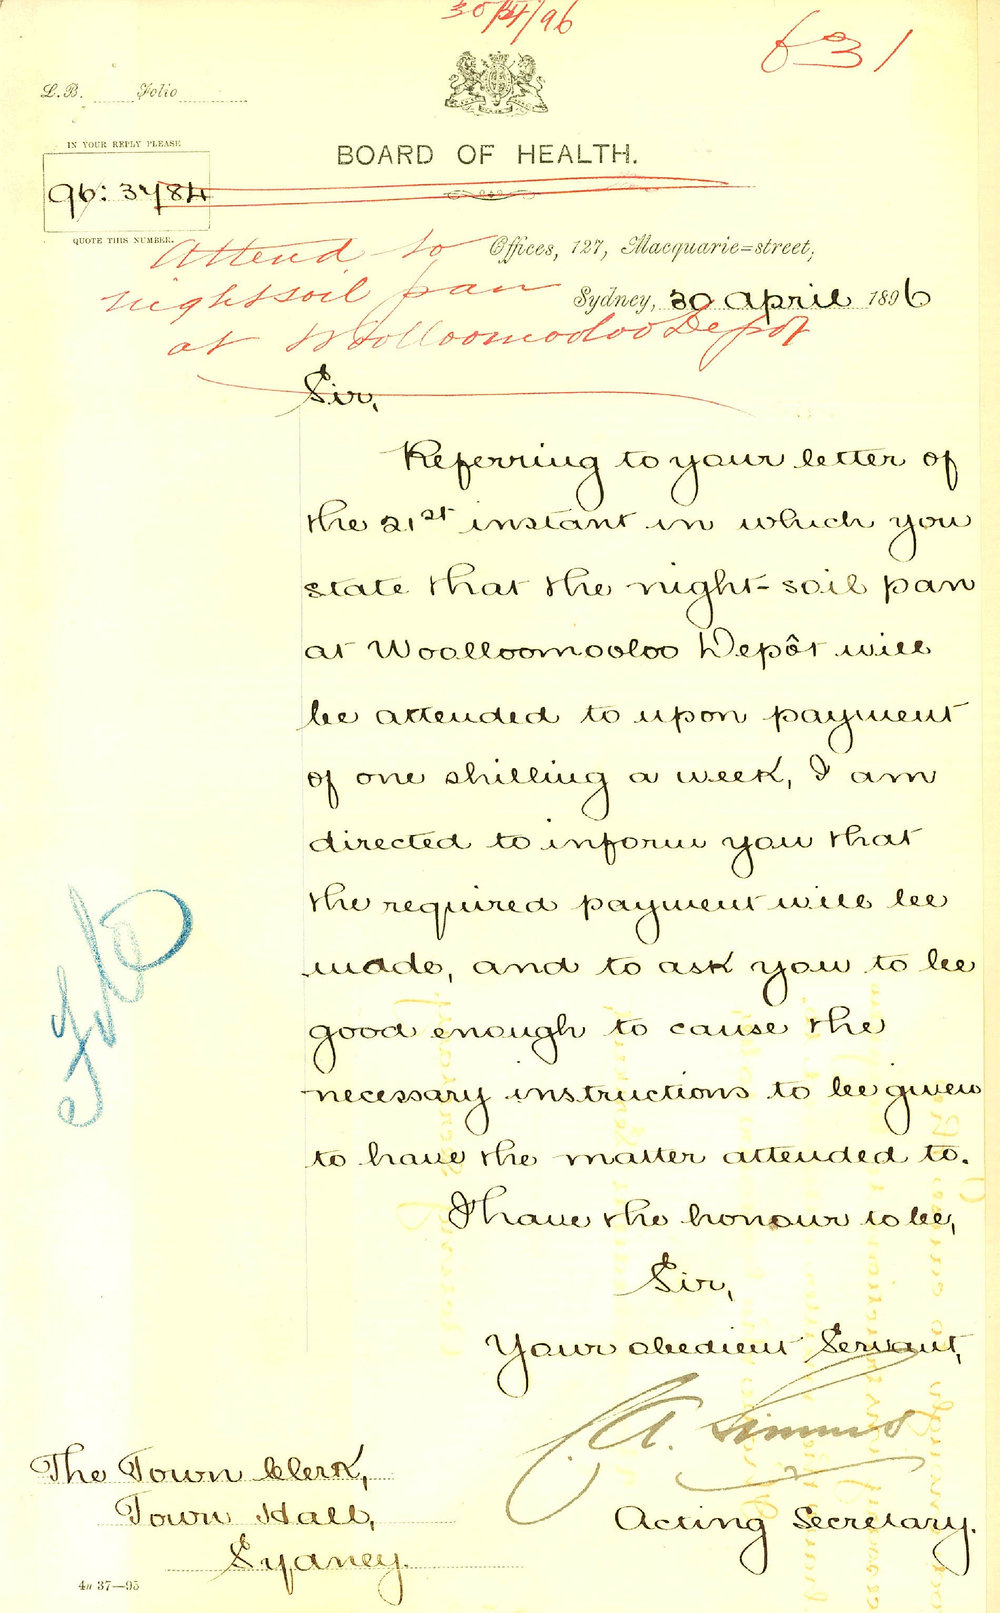 30/4/96
631
L.B. Folio
IN YOUR REPLY PLEASE
96: 3784
QUOTE THIS NUMBER.
BOARD OF HEALTH.
Attend to
nightsoil pan
at Woolloomooloo Depôt
Offices, 127, Macquarie=street,
Sydney, 30 April 1896
Sir,
Referring to your letter of
the 21st instant in which you
state that the night-soil pan
at Woolloomooloo Depôt will
be attended to upon payment
of one shilling a week, I am
directed to inform you that
the required payment will be
made, and to ask you to be
good enough to cause the
necessary instructions to be given
to have the matter attended to.
I have the honour to be,
Sir,
Your obedient Servant,
A. Simms
Acting Secretary.
The Town Clerk,
Town Hall,
Sydney.
4n 37—95